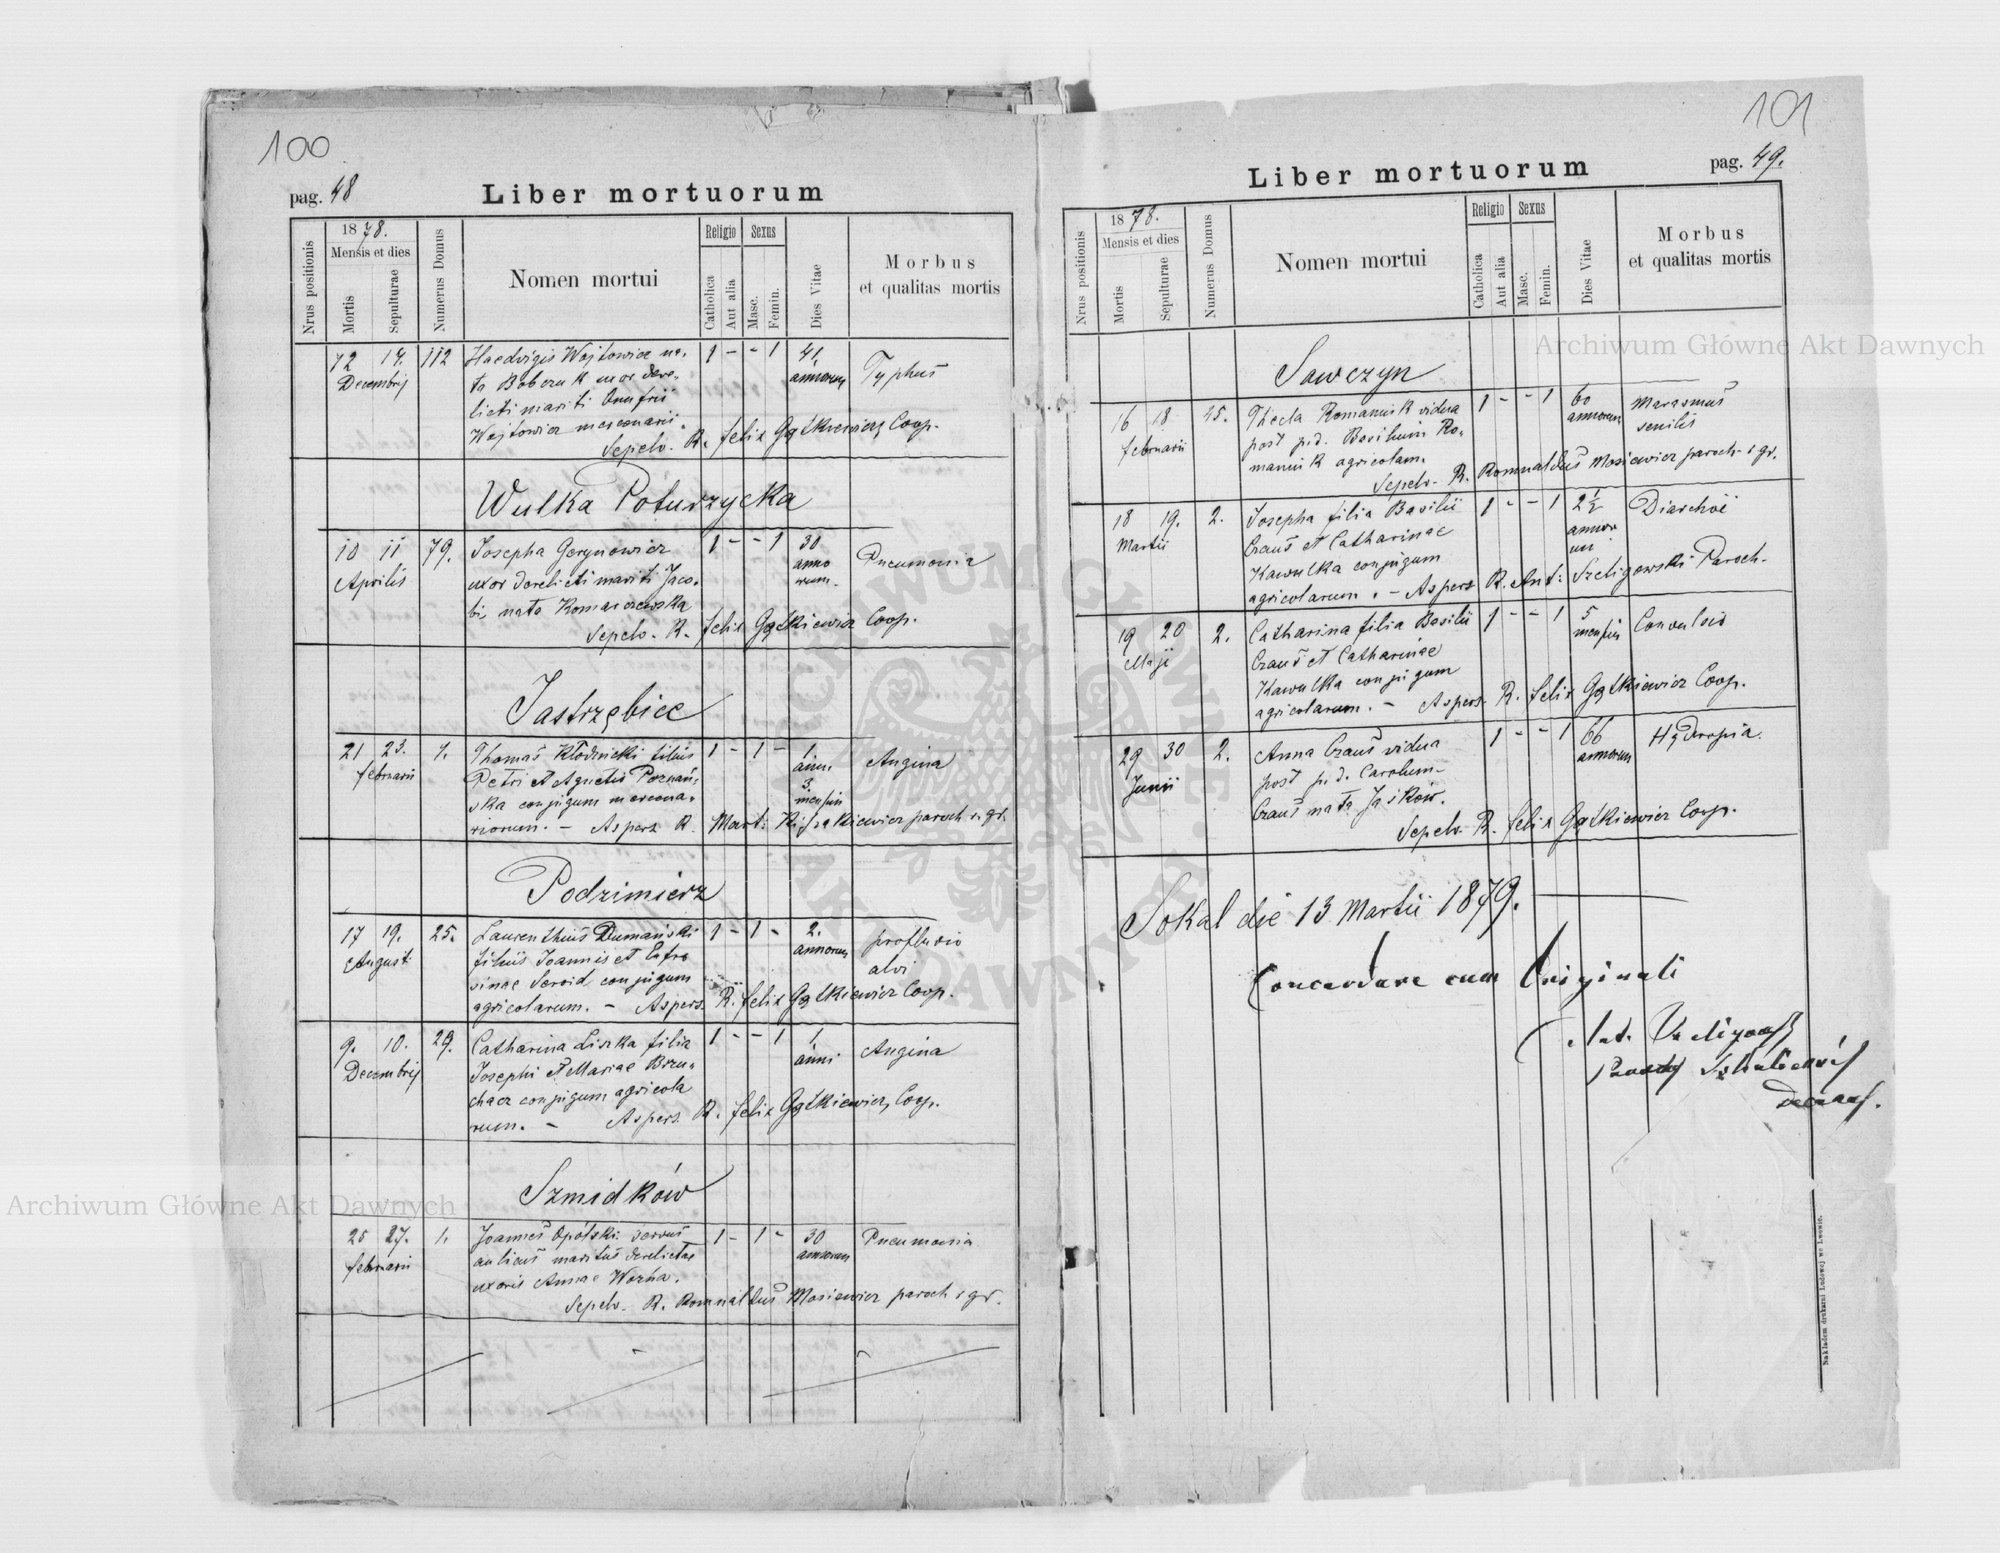 100
pag. 48
Liber mortuorum
Nrus positionis
1878.
Mensis et dies
Mortis
Sepulturae
Numerus Domus
Nomen mortui
Religio
Catholica
Aut alia
Sexus
Masc.
Femin.
Dies Vitae
Morbus
et qualitas mortis
12 14. 112 Haedvigis Wojtowicz na- 1 - - 1 41 Typhus
Decembrij ta Bobczuk uxor dere- annorum
licti mariti Onufrii
Wojtowicz mercenarii.
Sepelv. R. Felix Gątkiewicz Coop.
Wulka Poturzycka
10 11 79. Josepha Gerynowicz 1 - - 1 30 Pneumonia
Aprilis uxor derelicti mariti Jaco- anno
bi, nata Komarzewska rum.
Sepelv. R. Felix Gątkiewicz Coop.
Jastrzębice
21 23. 1. Thomas Kłodnicki filius 1 - 1 - 1 Angina
Februarii Petri et Agnetis Poznań- anni
ska conjugum mercena- 3. mensium
riorum. - Aspers. R. Mart: paroch r. gr.
Podzimierz
17 19. 25. Laurenthius Dumański 1 - 1 - 2. profluvio
August: filius Joannis et Eufro annorum alvi
sinae Seroid conjugum
agricolarum. - Aspers. R. Felix Gątkiewicz Coop.
9. 10. 29. Catharina Liszka filia 1 - - 1 1 Angina
Decembrij Josephi et Mariae Brzu- anni
chacz conjugum agricola
rum. - Aspers. R. Felix Gątkiewicz, Coop.
Szmidków
25 27. 1. Joannes Opolski servus 1 - 1 - 30 Pneumonia
Februarii aulicus maritus derelictae annorum
uxoris Annae Worha.
Sepelv. R. Romualdus Mosiewicz paroch r gr.
101
Liber mortuorum
pag. 49.
Nrus positionis
1878.
Mensis et dies
Mortis
Sepulturae
Numerus Domus
Nomen mortui
Religio
Catholica
Aut alia
Sexus
Masc.
Femin.
Dies Vitae
Morbus
et qualitas mortis
Sawczyn
16 18 25. Thecla Romaniuk vidua 1 - - 1 60 Marasmus
Februarii post p.d. Basilium Ro- annorum senilis
maniuk agricolam.
Sepelv. R. Romualdus Mosiewicz paroch r gr.
18 19. 2. Josepha filia Basilii 1 - - 1 2 1/2 Diarchöe
Martii Czaus et Catharinae annor
Kawulka conjugum um
agricolarum. - Aspers. R. Ant: Szeligowski Paroch.
19 20 2. Catharina filia Basilii 1 - - 1 5 Convulsio
Maji Czaus et Catharinae mensium
Kawulka conjugum
agricolarum. - Aspers. R. Felix Gątkiewicz Coop.
29 30 2. Anna Czaus vidua 1 - - 1 66 Hydropsia.
Junii post p.d. Carolum annorum
Czaus nata Jaśków.
Sepelv. R. Felix Gątkiewicz Coop.
Sokal die 13 Martii 1879.
Concordare cum Originali
Ant.
Nakładem drukarni Ludowej we Lwowie.
Archiwum Główne Akt Dawnych
Archiwum Główne Akt Dawnych
ARCHIWUM GŁÓWNE AKT DAWNYCH